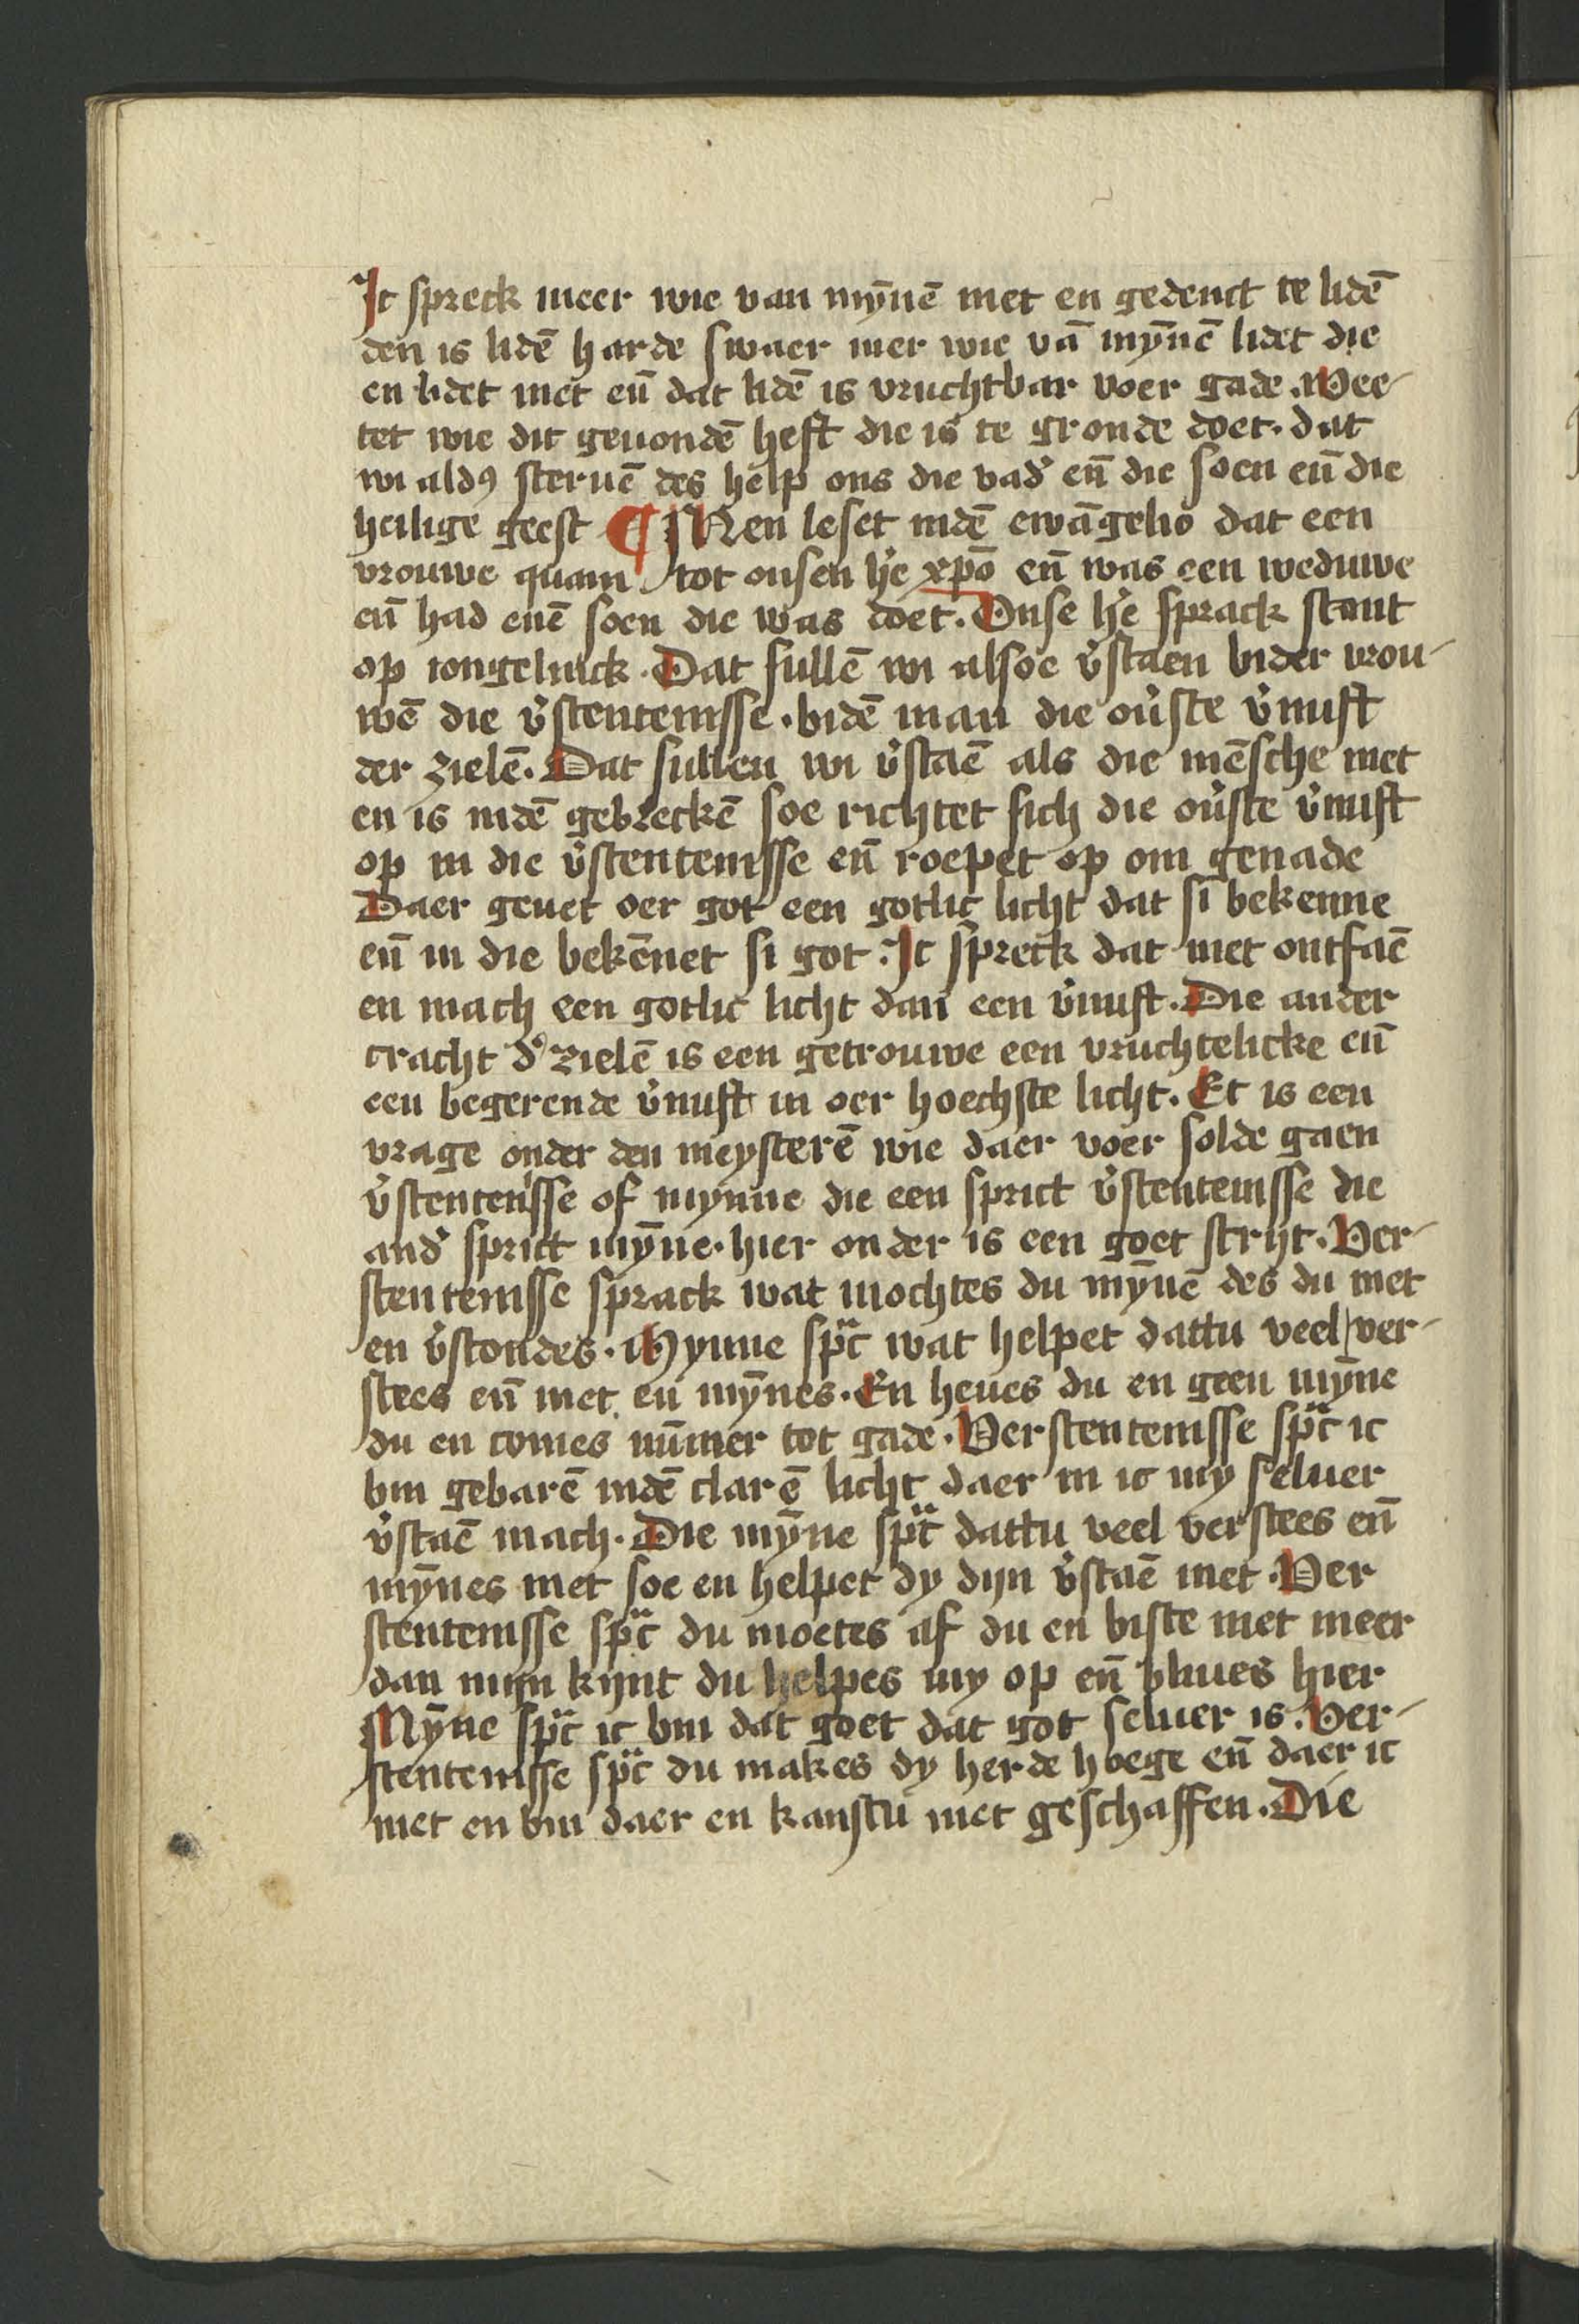 Ic spreck meer wie van mȳnē niet en gedenct te lidē
den is lidē harde swaer mer wie vā mȳnē lidet die
en lidet niet eñ dat lidē is vruchtbar voer gade. Wee-
tet wie dit geuondē heft die is te gronde doet. dat
wi aldꝰ steruē des help ons die vad͛ eñ die soen eñ die
heilige geest ¶ Men leset indē ewāgelio dat een
vrouwe quam tot onsen h͛e xp̄o eñ was een weduwe
eñ had enē soen die was doet. Onse h͛e sprack stant
op iongelinck. Dat sullē wi alsoe v͛staen bider vrou-
wē die v͛stentenisse. bidē man die ou͛ste v͛nuft
der zielē. Dat sullen wi v͛staē als die mēsche niet
en is indē gebreckē soe richtet sich die ou͛ste v͛nuft
op in die v͛stentenisse eñ roepet op om genade
Daer geuet oer got een gotlic licht dat si bekenne
eñ in die bekēnet si got. Ic spreck dat niet ontfaē
en mach een gotlic licht dan een v͛nuft. Die ander
cracht d͛ zielē is een getrouwe een vruchtelicke eñ
een begerende v͛nuft in oer hoechste licht. Et is een
vrage onder den meysterē wie daer voer solde gaen
v͛stentenisse of mynne die een sprict v͛stentenisse die
and͛ sprict mȳne. hier onder is een goet strijt. Ver-
stentenisse sprack wat mochtes du mȳnē des du niet
en v͛stondes. Mynne spͣc wat helpet dattu veel ver-
stees eñ niet en mȳnes. En heues du en geen mȳne
du en comes nūmer tot gade. Verstentenisse spͣc ic
bin gebarē indē clarē licht daer in ic my seluer
v͛staē mach. Die mȳne spͣc dattu veel verstees eñ
mȳnes niet soe en helpet dy dijn v͛staē niet. Ver
stentenisse spͣc du moetes af du en biste niet meer
dan mijn kijnt du helpes my op eñ bliues hier
Mȳne spͣc ic bin dat goet dat got seluer is. Ver-
stentenisse spͣc du makes dy herde hoege eñ daer ic
niet en bin daer en kanstu niet geschaffen. Die